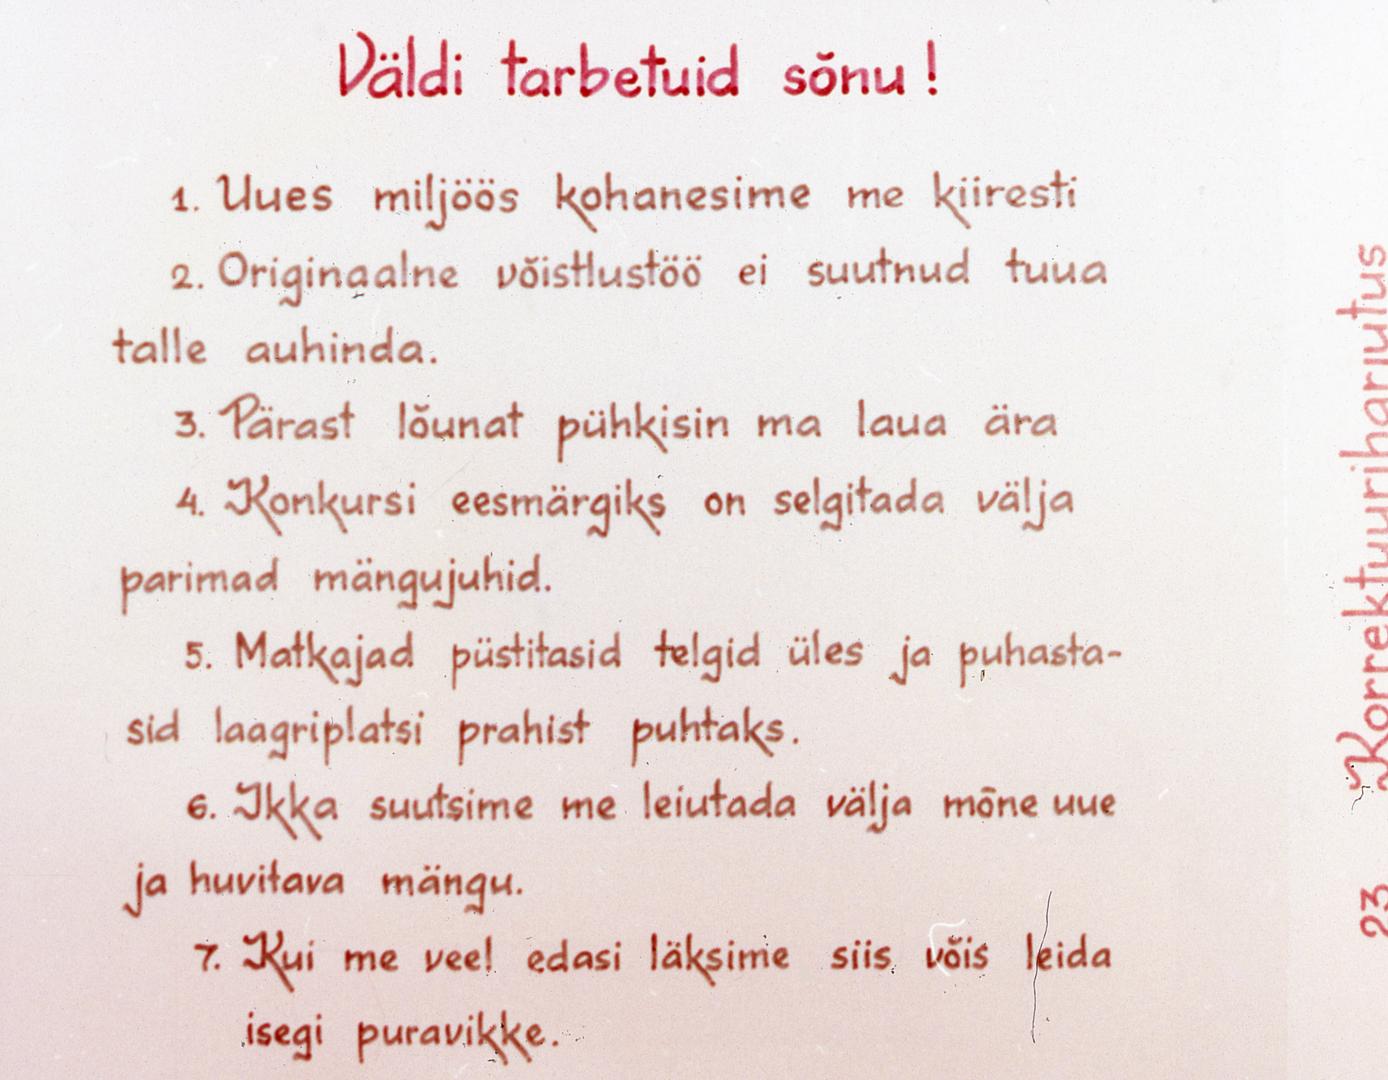 Väldi tarbetuid sõnu!
1. Uues miljöös kohanesime me kiiresti
2. Originaalne võistlustöö ei suutnud tuua
talle auhinda.
3. Pärast lõunat pühkisin ma laua ära
4. Konkursi eesmärgiks on selgitada välja
parimad mängujuhid.
5. Matkajad püstitasid telgid üles ja puhasta-
sid laagriplatsi prahist puhtaks.
6. Ikka suutsime me leiutada välja mõne uue
ja huvitava mängu.
7. Kui me veel edasi läksime siis võis leida
isegi puravikke.
23 Korrektuuriharjutus